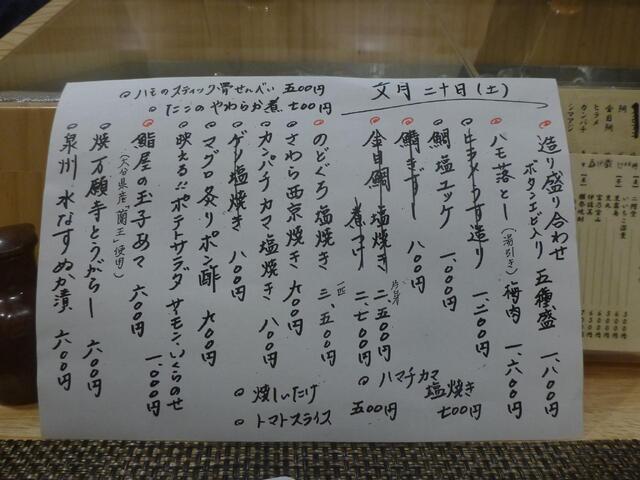 文月 二十日(土)
◎ハモのスティック骨せんべい 五〇〇円
◎たこのやわらか煮 七〇〇円
◎造り盛り合わせ 五種盛 一、八〇〇円
ボタンエビ入り
◎ハモ落とし(湯引き)梅肉 一、六〇〇円
うす造り 一、二〇〇円
◎鯛塩ユッケ 一、〇〇〇円
八〇〇円
◎金目鯛 塩焼き 二、五〇〇円
煮つけ 二、七〇〇円
◎のどぐろ塩焼き 一匹 三、五〇〇円
◎さわら西京焼き 九〇〇円
◎カンパチカマ塩焼き 八〇〇円
◎ゲソ塩焼き 八〇〇円
◎マグロ炙りポン酢 九〇〇円
◎映える!!ポテトサラダ サーモン、いくらのせ 一、〇〇〇円
◎鮨屋の玉子あて 六〇〇円
(大分県産「蘭王」使用)
◎焼万願寺とうがらし 六〇〇円
◎泉州 水なすぬか漬 六〇〇円
◎ハマチカマ塩焼き 七〇〇円
◎焼しいたけ
◎トマトスライス 五〇〇円
ヒラメ
金目鯛
カンパチ
シマアジ